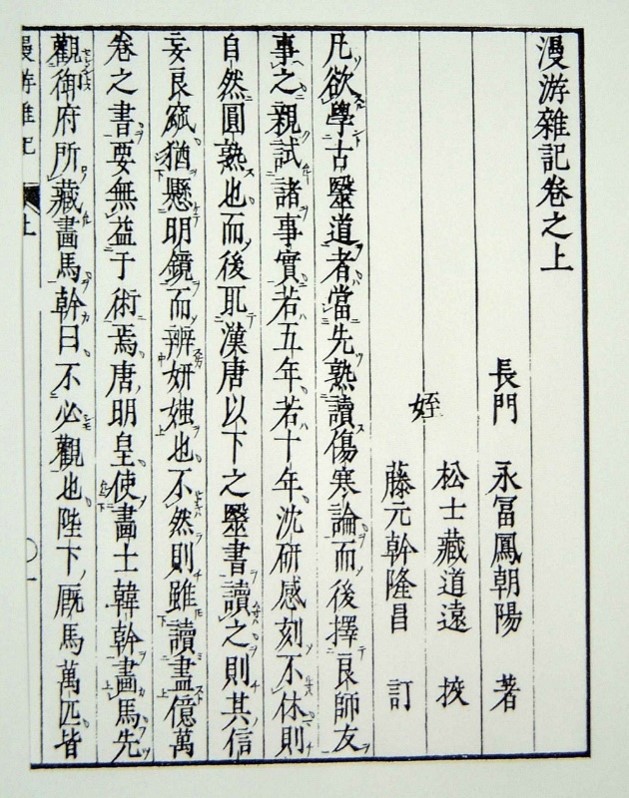 漫游雜記卷之上
長門 永冨鳳朝陽 著
姪 松士藏道遠 挍
藤元幹隆昌 訂
凡欲學古毉道者當先熟讀傷寒論而後擇良師友
事之親試諸事實若五年若十年沈研感刻不休則
自然圓熟也而後取漢唐以下之毉書讀之則其信
妄良窳猶懸明鏡而辨妍媸也不然則雖讀盡億萬
卷之書要無益于術焉唐明皇使畵士韓幹畵馬先
觀御府所藏畵馬幹曰不必觀也陛下厩馬萬匹皆
漫游雜記 上 一